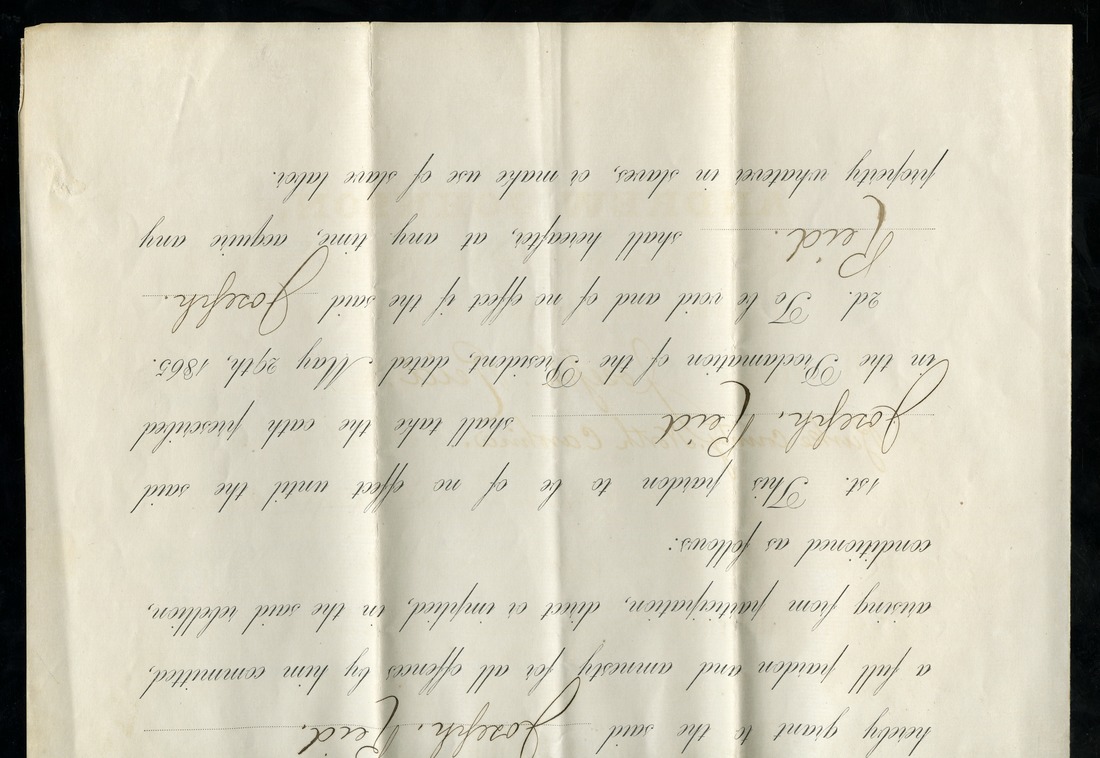 hereby grant to the said Joseph. Reid.
a full pardon and amnesty for all offences by him committed,
arising from participation, direct or implied, in the said rebellion,
conditioned as follows:
1st. This pardon to be of no effect until the said
Joseph. Reid shall take the oath prescribed
in the Proclamation of the President, dated May 29th, 1865.
2d. To be void and of no effect if the said Joseph.
Reid. shall hereafter, at any time, acquire any
property whatever in slaves, or make use of slave labor.